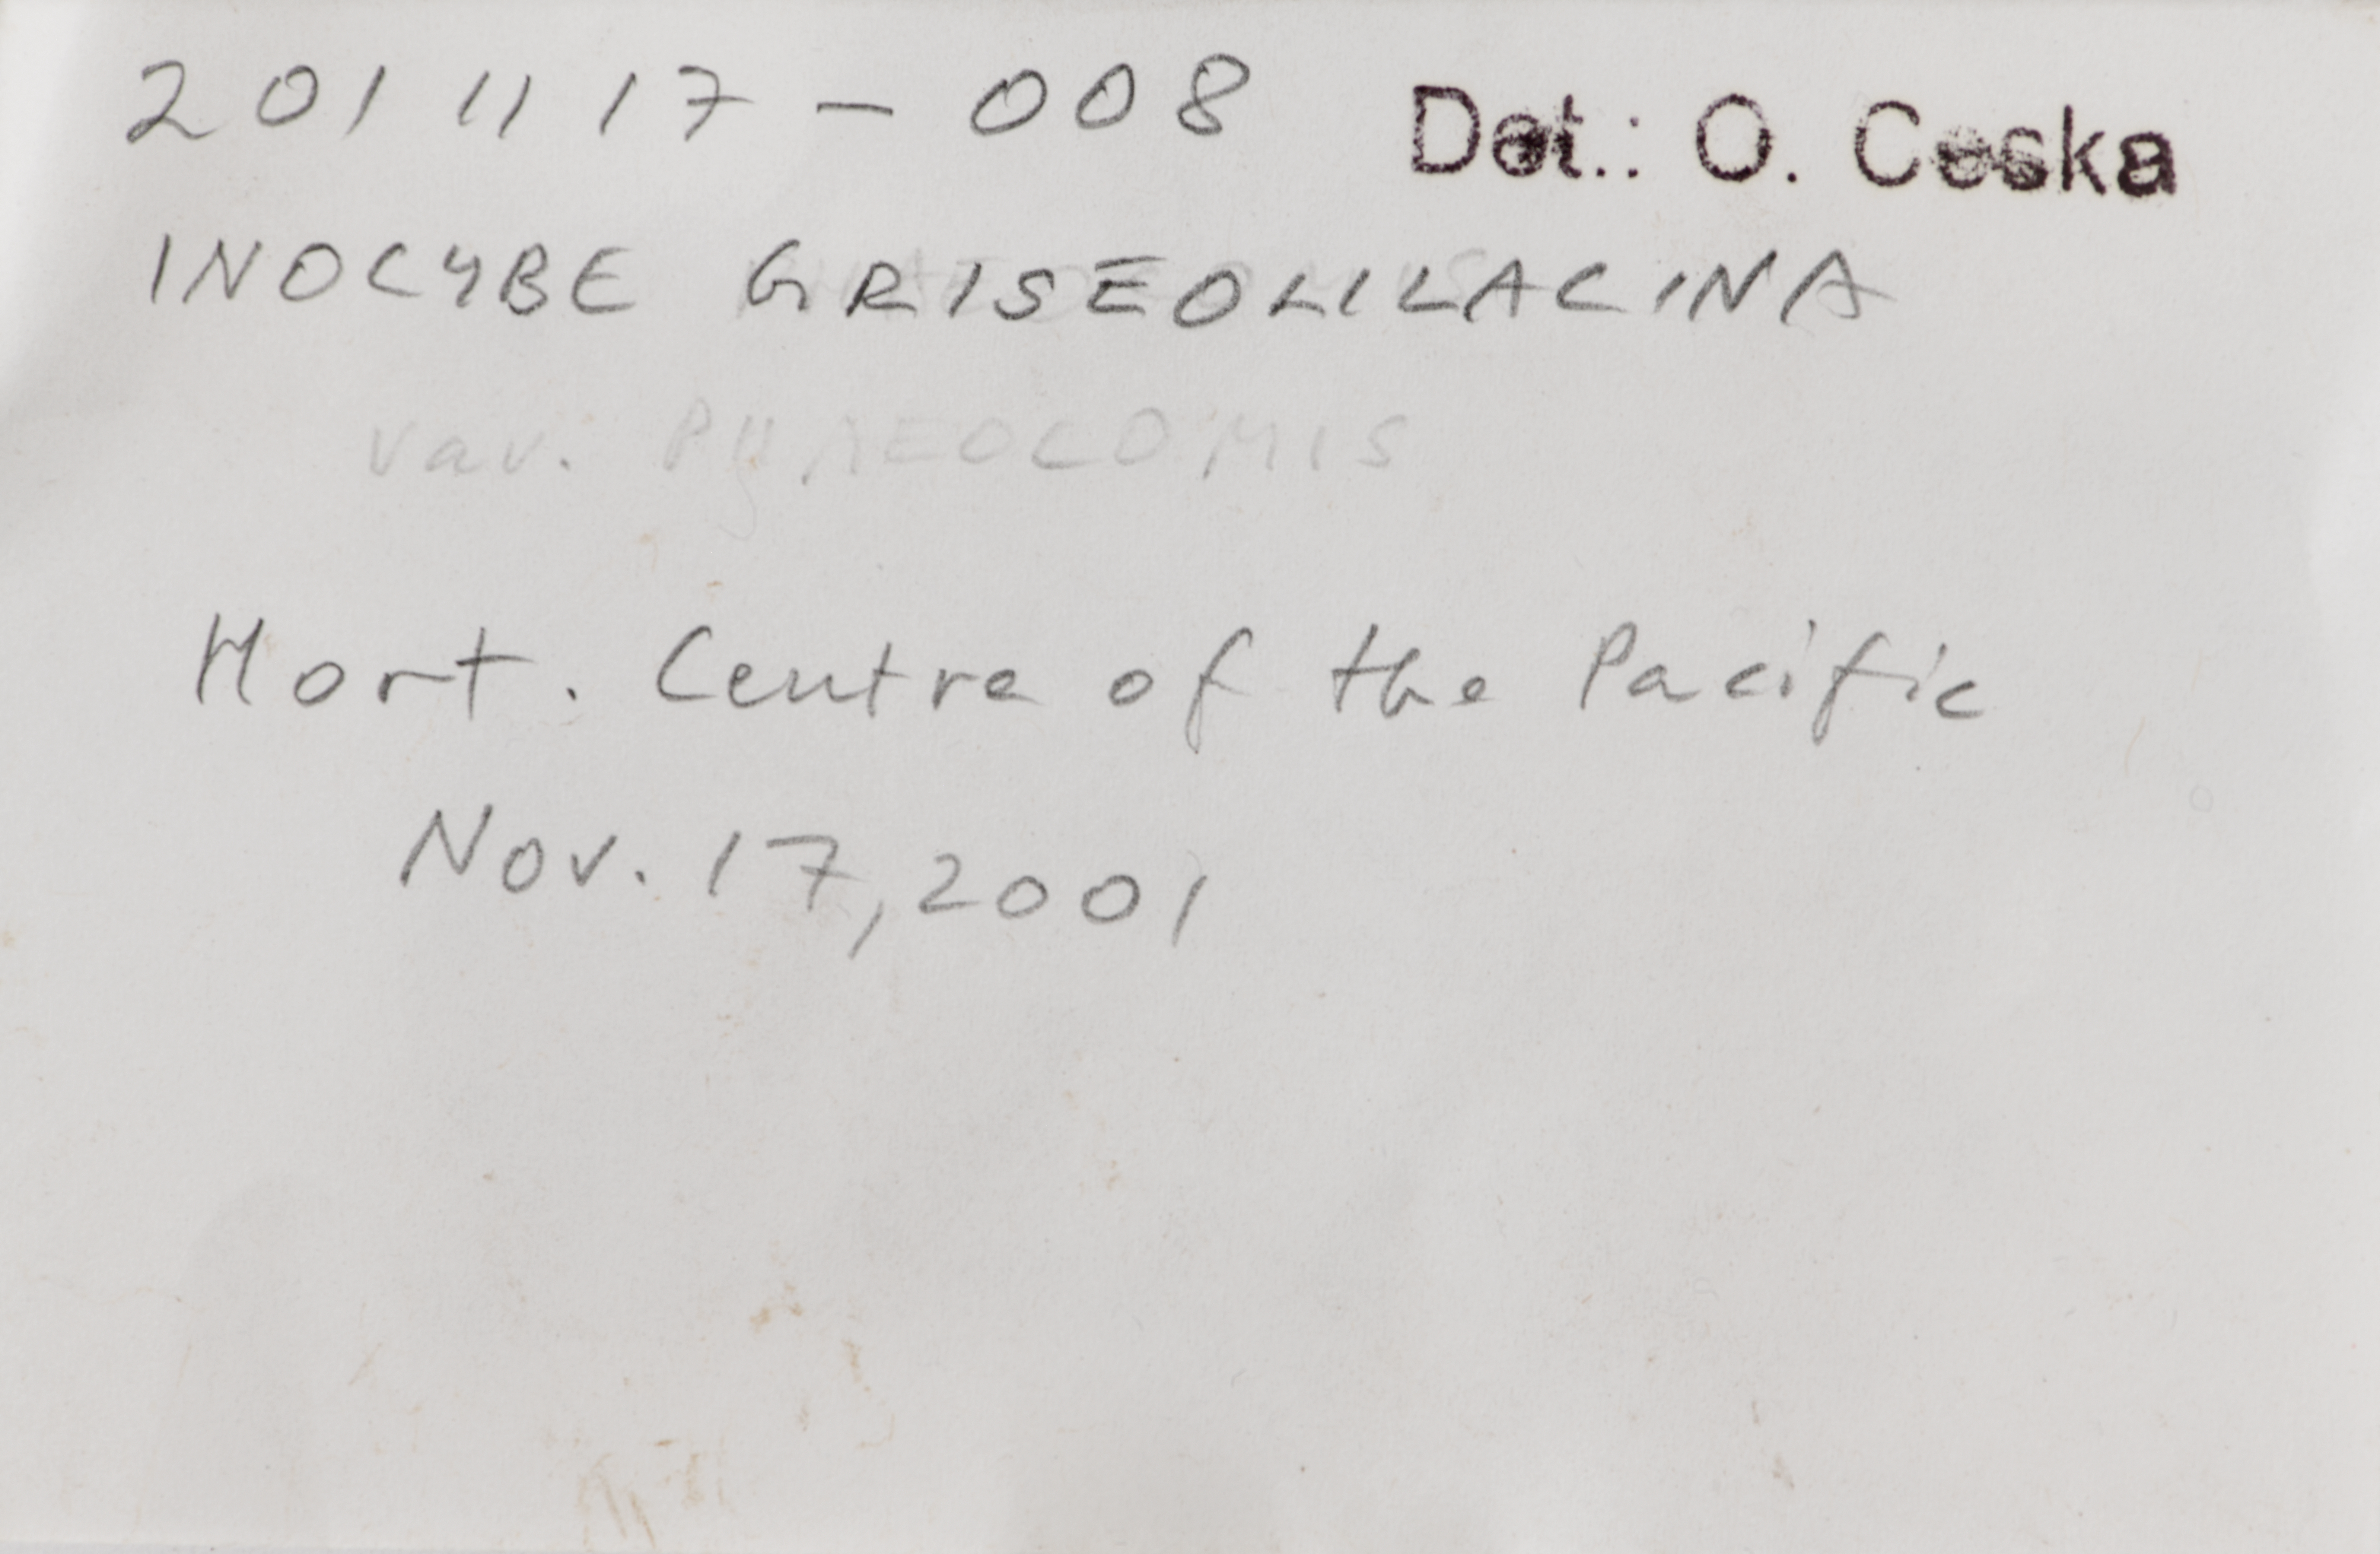 201117-008 Det.: O. Ceska
INOCYBE GRISEOLILACINA
var. PHAEOCOMIS
Hort. Centre of the Pacific
Nov. 17, 2001